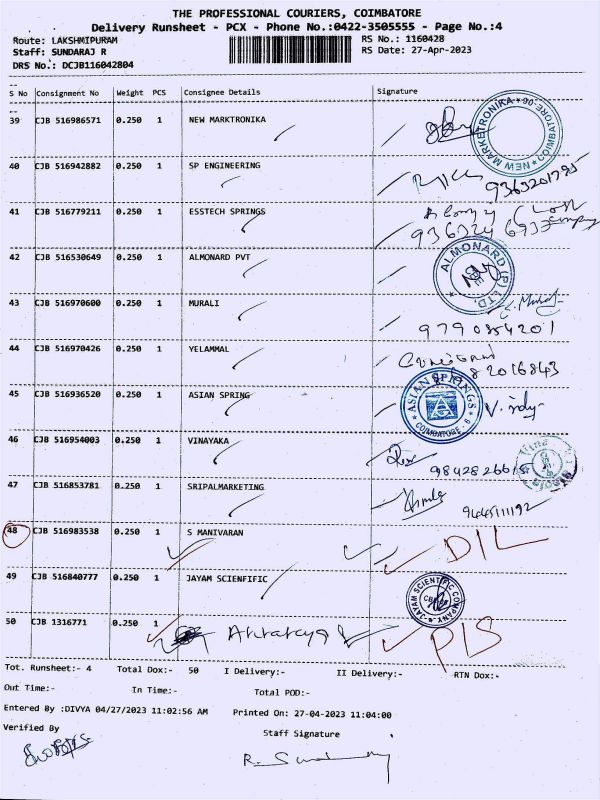 THE PROFESSIONAL COURIERS, COIMBATORE
Delivery Runsheet - PCX - Phone No.:0422-3505555 - Page No.:4
Route: LAKSHMIPURAM RS No.: 1160428
Staff: SUNDARAJ R RS Date: 27-Apr-2023
DRS No.: DCJB116042804
S No Consignment No Weight PCS Consignee Details Signature
39 CJB 516986571 0.250 1 NEW MARKTRONIKA
NEW MARKETRONIKA COIMBATORE-06
40 CJB 516942882 0.250 1 SP ENGINEERING
41 CJB 516779211 0.250 1 ESSTECH SPRINGS
42 CJB 516530649 0.250 1 ALMONARD PVT
ALMONARD (P) LTD.
43 CJB 516970600 0.250 1 MURALI
44 CJB 516970426 0.250 1 YELAMMAL
82016843
45 CJB 516936520 0.250 1 ASIAN SPRING
ASIAN SPRINGS COIMBATORE - 6
46 CJB 516954003 0.250 1 VINAYAKA
47 CJB 516853781 0.250 1 SRIPALMARKETING
48 CJB 516983538 0.250 1 S MANIVARAN
DIL
49 CJB 516840777 0.250 1 JAYAM SCIENFIFIC
JAYAM SCIENTIFIC COMPANY
50 CJB 1316771 0.250 1
Tot. Runsheet:- 4 Total Dox:- 50 I Delivery:- II Delivery:- RTN Dox:-
Out Time:- In Time:- Total POD:-
Entered By :DIVYA 04/27/2023 11:02:56 AM Printed On: 27-04-2023 11:04:00
Verified By Staff Signature